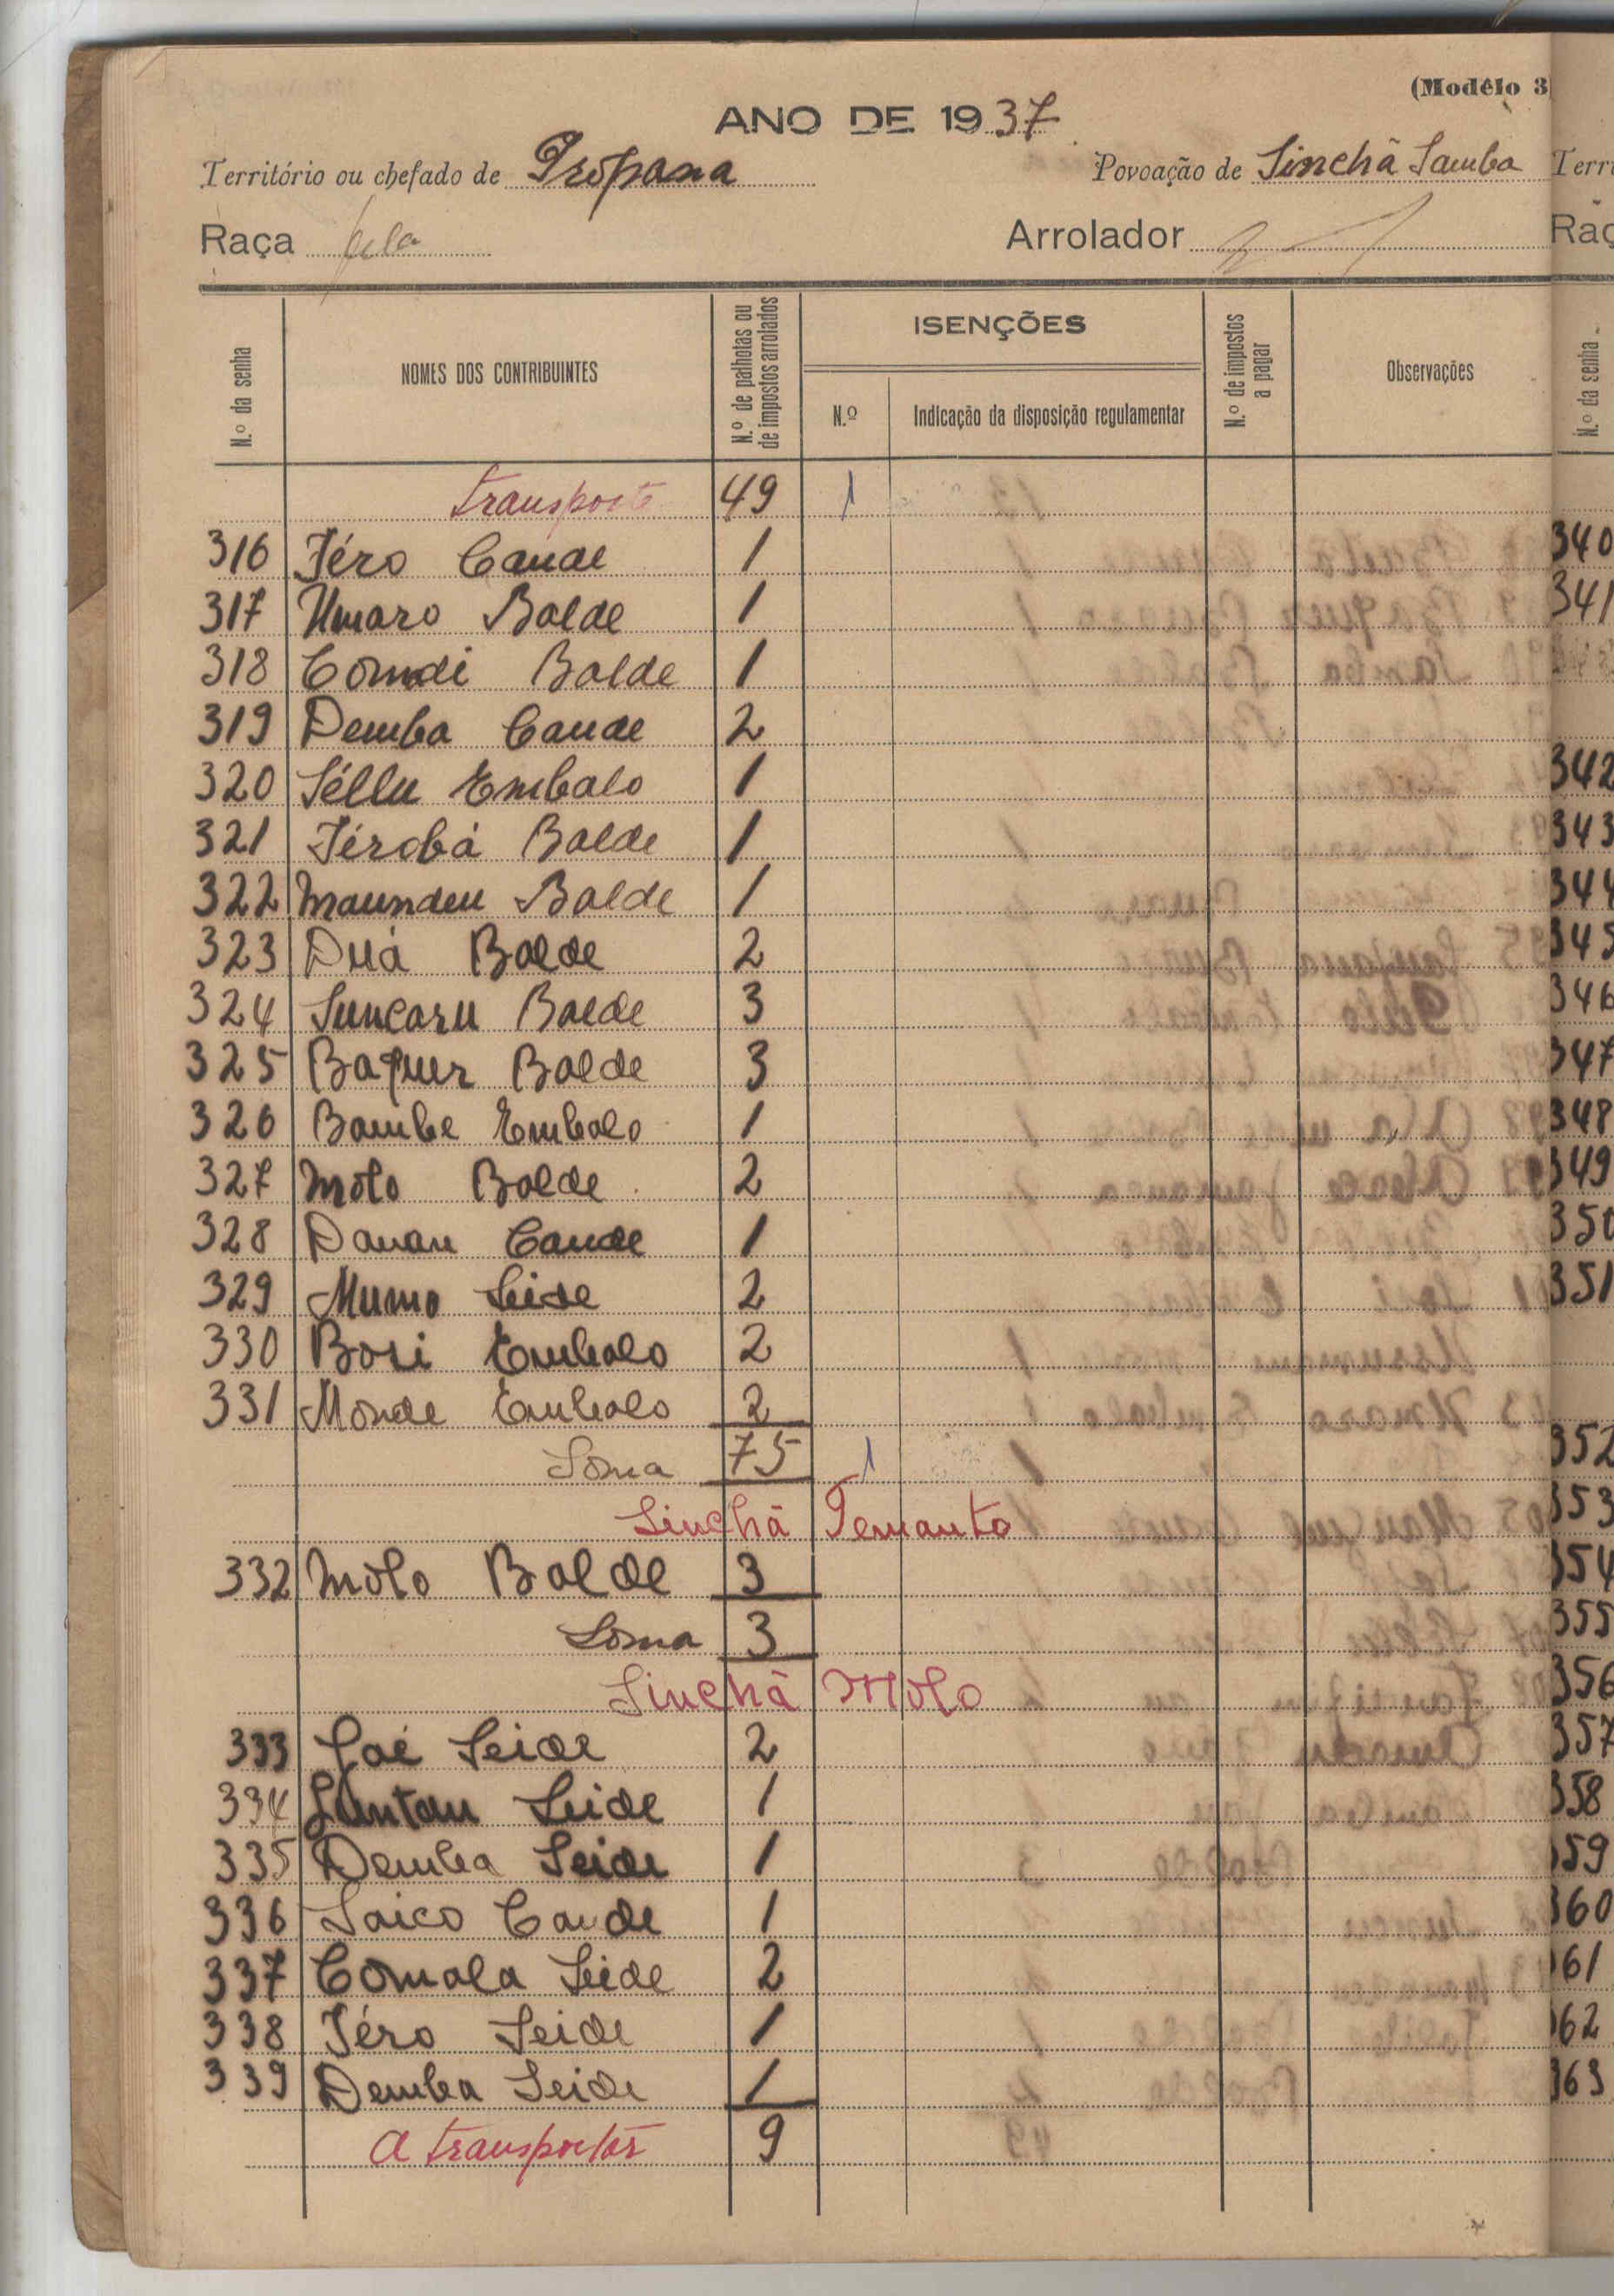 (Modêlo 3
ANO DE 1937
Território ou chefado de Propana Povoação de Sinchã Samba
Raça fula Arrolador
N.º da senha NOMES DOS CONTRIBUINTES N.º de palhotas ou de impostos arrolados ISENÇÕES N.º Indicação da disposição regulamentar N.º de impostos a pagar Observações
transporte 49 1
316 Téro Cande 1
317 Umaro Balde 1
318 Comdi Balde 1
319 Demba Cande 2
320 Séllu Embalo 1
321 Térobá Balde 1
322 Maunden Balde 1
323 Duá Balde 2
324 Suncaru Balde 3
325 Baquer Balde 3
326 Bambe Embalo 1
327 Molo Balde 2
328 Dauan Cande 1
329 Mumo Seide 2
330 Bori Embalo 2
331 Monde Embalo 2
Soma 75 1
Sinchã Temanto
332 Molo Balde 3
Soma 3
Sinchã Molo
333 Seide 2
334 Seide 1
335 Demba Seide 1
336 Saico Cande 1
337 Comala Seide 2
338 Téro Seide 1
339 Demba Seide 1
A transportar 9
Terri
Raç
N.º da senha
340
341
342
343
344
345
346
347
348
349
350
351
352
353
354
355
356
357
358
359
360
361
362
363